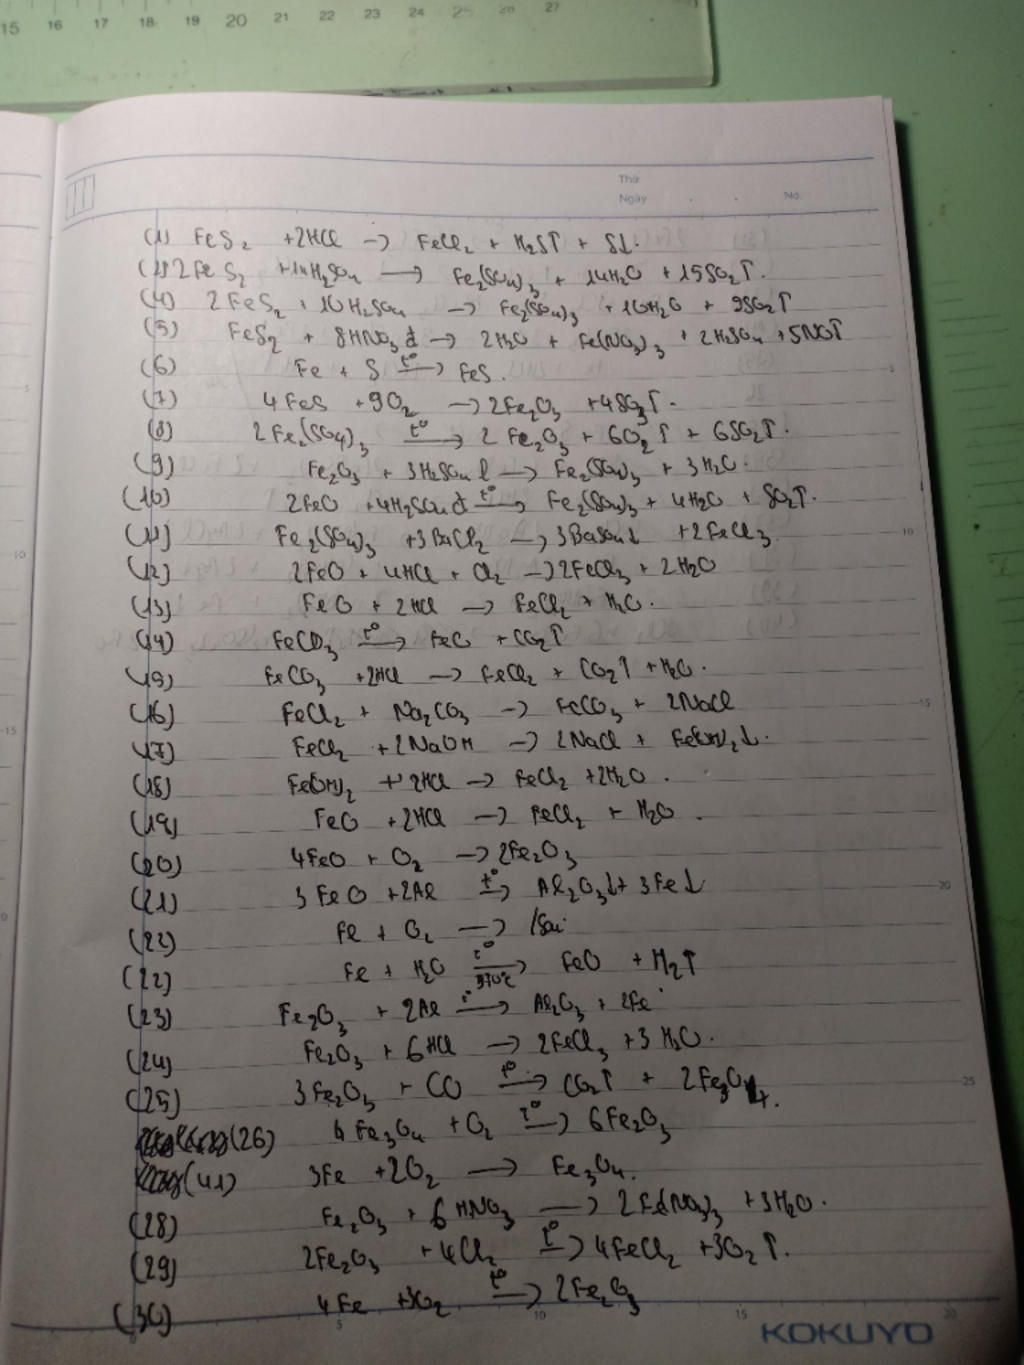 15 16 17 18 19 20 21 22 23 24 25 26 27
Thứ
Ngày No.
(1) FeS2 +2HCl → FeCl2 + H2S↑ + S↓.
2FeS2 +14H2SO4 → Fe2(SO4)3 + 14H2O +15SO2↑.
(4) 2FeS2 + 10H2SO4 → Fe2(SO4)3 +10H2O + 9SO2↑
(5) FeS2 + 8HNO3 đ → 2H2O + Fe(NO3)3 + 2H2SO4 +5NO↑
(6) Fe + S t°→ FeS.
(7) 4FeS +9O2 → 2Fe2O3 +4SO3↑.
(8) 2Fe2(SO4)3 t°→ 2Fe2O3 + 6O2↑ + 6SO2↑.
(9) Fe2O3 + 3H2SO4 l → Fe2(SO4)3 + 3H2O.
(10) 2FeO +4H2SO4 đ t°→ Fe2(SO4)3 + 4H2O + SO2↑.
(11) Fe2(SO4)3 +3BaCl2 → 3BaSO4↓ +2FeCl3
10
(12) 2FeO + 4HCl + Cl2 → 2FeCl3 + 2H2O
(13) FeO + 2HCl → FeCl2 + H2O.
(14) FeCO3 t°→ FeO + CO2↑
(15) FeCO3 +2HCl → FeCl2 + CO2↑ +H2O.
(16) FeCl2 + Na2CO3 → FeCO3 + 2NaCl
15
(17) FeCl2 +2NaOH → 2NaCl + Fe(OH)2↓.
(18) Fe(OH)2 + 2HCl → FeCl2 +2H2O.
(19) FeO +2HCl → FeCl2 + H2O.
(20) 4FeO + O2 → 2Fe2O3
(21) 3FeO +2Al t°→ Al2O3↓+ 3Fe↓
20
(22) Fe + O2 → /Sai
(22) Fe + H2O t°→ 570°C FeO + H2↑
(23) Fe2O3 + 2Al t°→ Al2O3 + 2Fe
(24) Fe2O3 + 6HCl → 2FeCl3 +3H2O.
(25) 3Fe2O3 + CO t°→ CO2↑ + 2Fe3O4.
25
(26) 4Fe3O4 +O2 t°→ 6Fe2O3
(41) 3Fe +2O2 → Fe3O4.
(28) Fe2O3 + 6HNO3 → 2Fe(NO3)3 +3H2O.
(29) 2Fe2O3 +4Cl2 t°→ 4FeCl2 +3O2↑.
(30) 4Fe +3O2 t°→ 2Fe2O3
5 10 15 20
KOKUYO